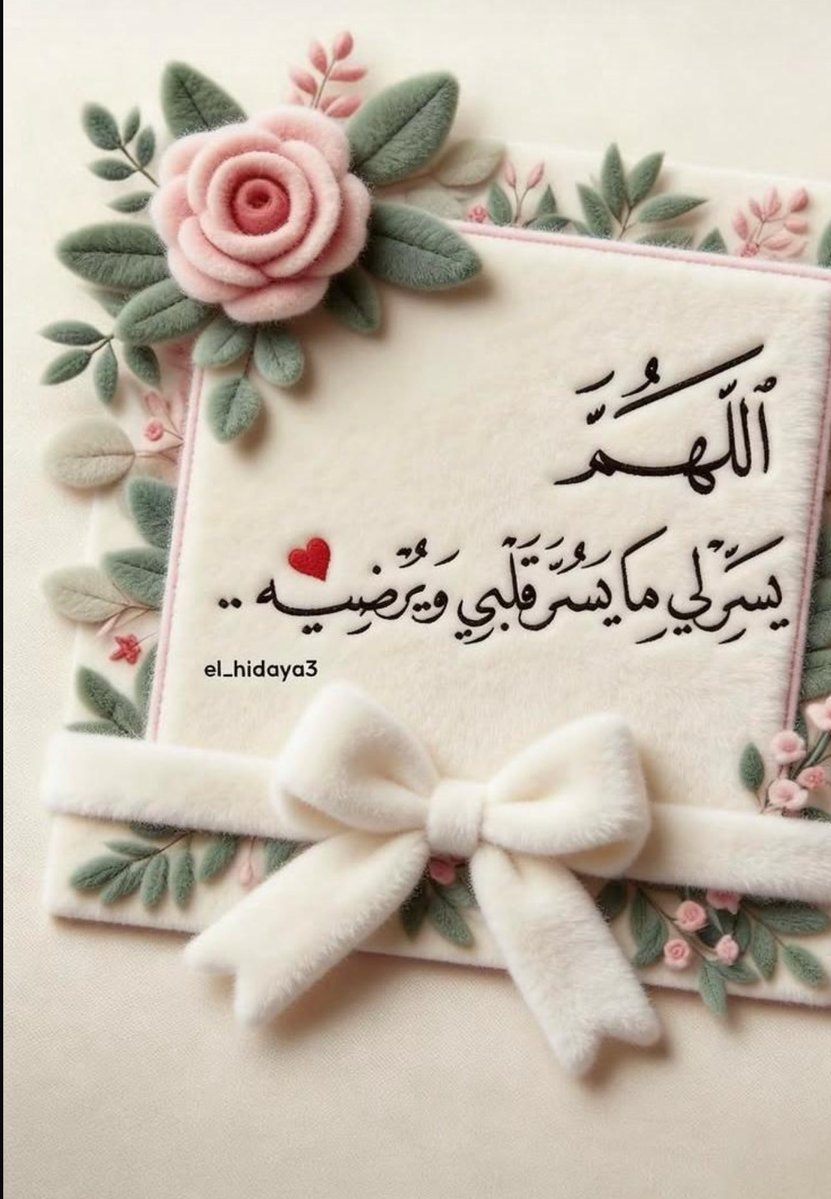 ٱللَّهُمَّ
يَسِّرْ لِي مَا يَسُرُّ قَلْبِي وَيُرْضِيهِ ..
el_hidaya3